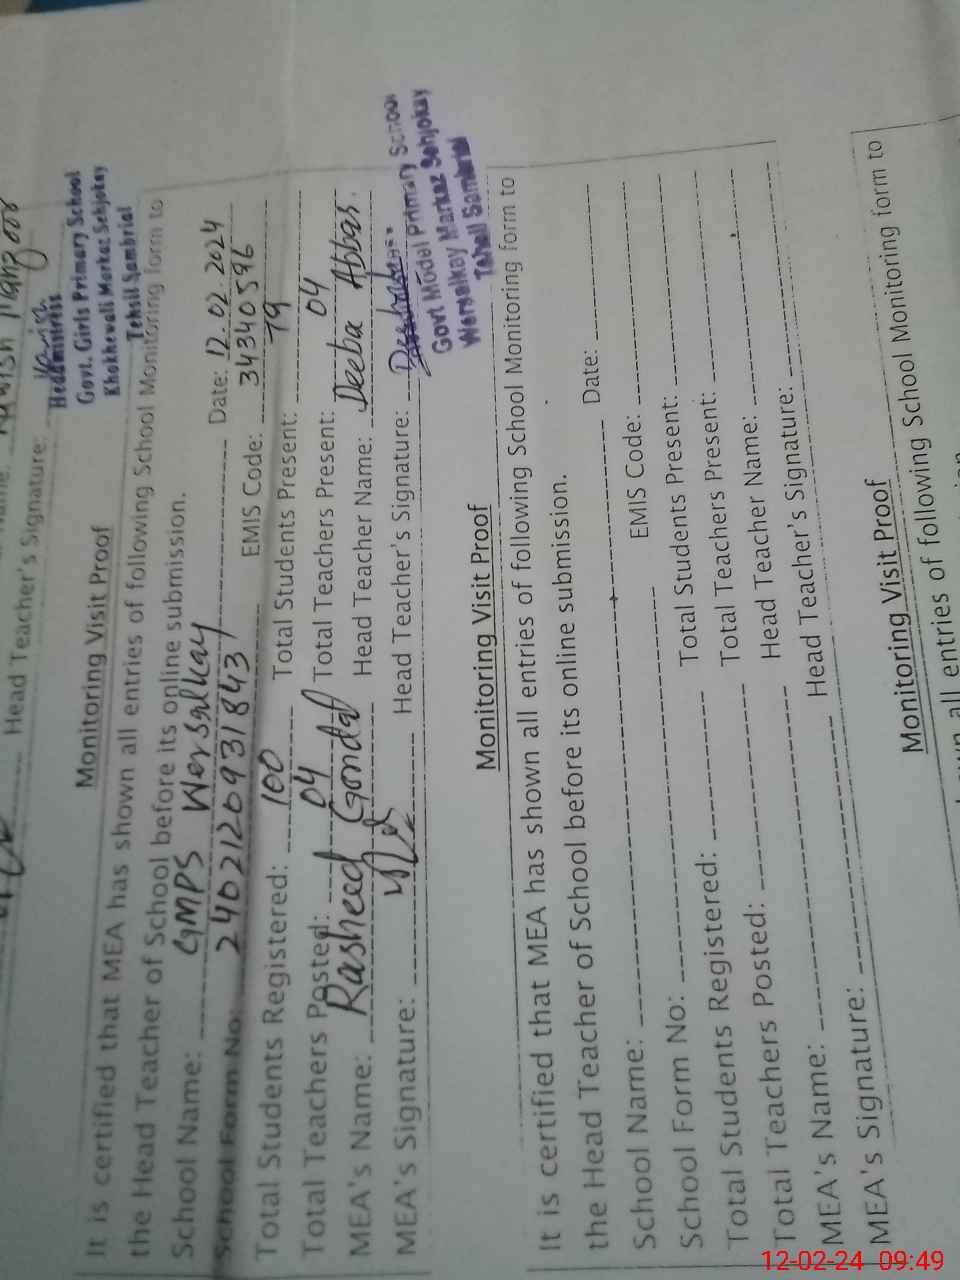 Head Teacher's Signature:
Headmistress
Govt. Girls Primary School
Khokhewali Markaz Sehjokay
Tehsil Sambrial
Monitoring Visit Proof
It is certified that MEA has shown all entries of following School Monitoring form to
the Head Teacher of School before its online submission.
School Name: GMPS Wersalkay Date: 12.02.2024
School Form No: 2402120931843 EMIS Code: 34340596
Total Students Registered: 100 Total Students Present: 79
Total Teachers Posted: 04 Total Teachers Present: 04
MEA's Name: Rasheed Gondal Head Teacher Name: Deeba Abbas.
MEA's Signature: Head Teacher's Signature:
Govt Model Primary School
Wersalkay Markaz Sehjokay
Tehsil Sambrial
Monitoring Visit Proof
It is certified that MEA has shown all entries of following School Monitoring form to
the Head Teacher of School before its online submission.
School Name: Date:
School Form No: EMIS Code:
Total Students Registered: Total Students Present:
Total Teachers Posted: Total Teachers Present:
MEA's Name: Head Teacher Name:
MEA's Signature: Head Teacher's Signature:
Monitoring Visit Proof
all entries of following School Monitoring form to
12-02-24 09:49